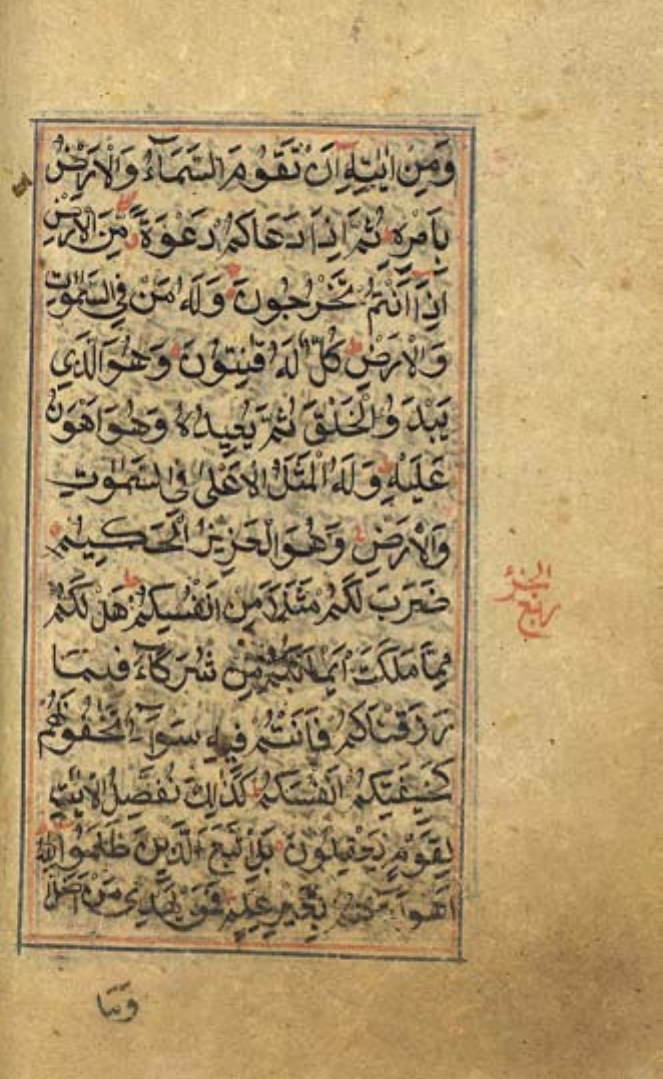 وَمِنْ اٰيٰتِهٖ اَنْ تَقُوْمَ السَّمَآءُ وَالْاَرْضُ
بِاَمْرِهٖ ثُمَّ اِذَا دَعَاكُمْ دَعْوَةً مِّنَ الْاَرْضِ
اِذَا اَنْتُمْ تَخْرُجُوْنَ وَلَهٗ مَنْ فِي السَّمٰوٰتِ
وَالْاَرْضِ كُلٌّ لَهٗ قٰنِتُوْنَ وَهُوَ الَّذِي
يَبْدَؤُ الْخَلْقَ ثُمَّ يُعِيْدُهٗ وَهُوَ اَهْوَنُ
عَلَيْهِ وَلَهُ الْمَثَلُ الْاَعْلٰى فِي السَّمٰوٰتِ
وَالْاَرْضِ وَهُوَ الْعَزِيْزُ الْحَكِيْمُ
ضَرَبَ لَكُمْ مَثَلًا مِنْ اَنْفُسِكُمْ هَلْ لَكُمْ
مِمَّا مَلَكَتْ اَيْمَانُكُمْ مِنْ شُرَكَآءَ فِيْمَا
رَزَقْنَاكُمْ فَاَنْتُمْ فِيْهِ سَوَآءٌ تَخَافُوْنَهُمْ
كَخِيْفَتِكُمْ اَنْفُسَكُمْ كَذٰلِكَ نُفَصِّلُ الْاٰيٰتِ
لِقَوْمٍ يَعْقِلُوْنَ بَلِ اتَّبَعَ الَّذِيْنَ ظَلَمُوْا
اَهْوَآءَهُمْ بِغَيْرِ عِلْمٍ فَمَنْ يَهْدِي مَنْ اَضَلَّ
ربع
وَمَا